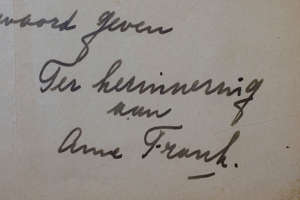 woord geven
Ter herinnering
aan
Anne Frank.